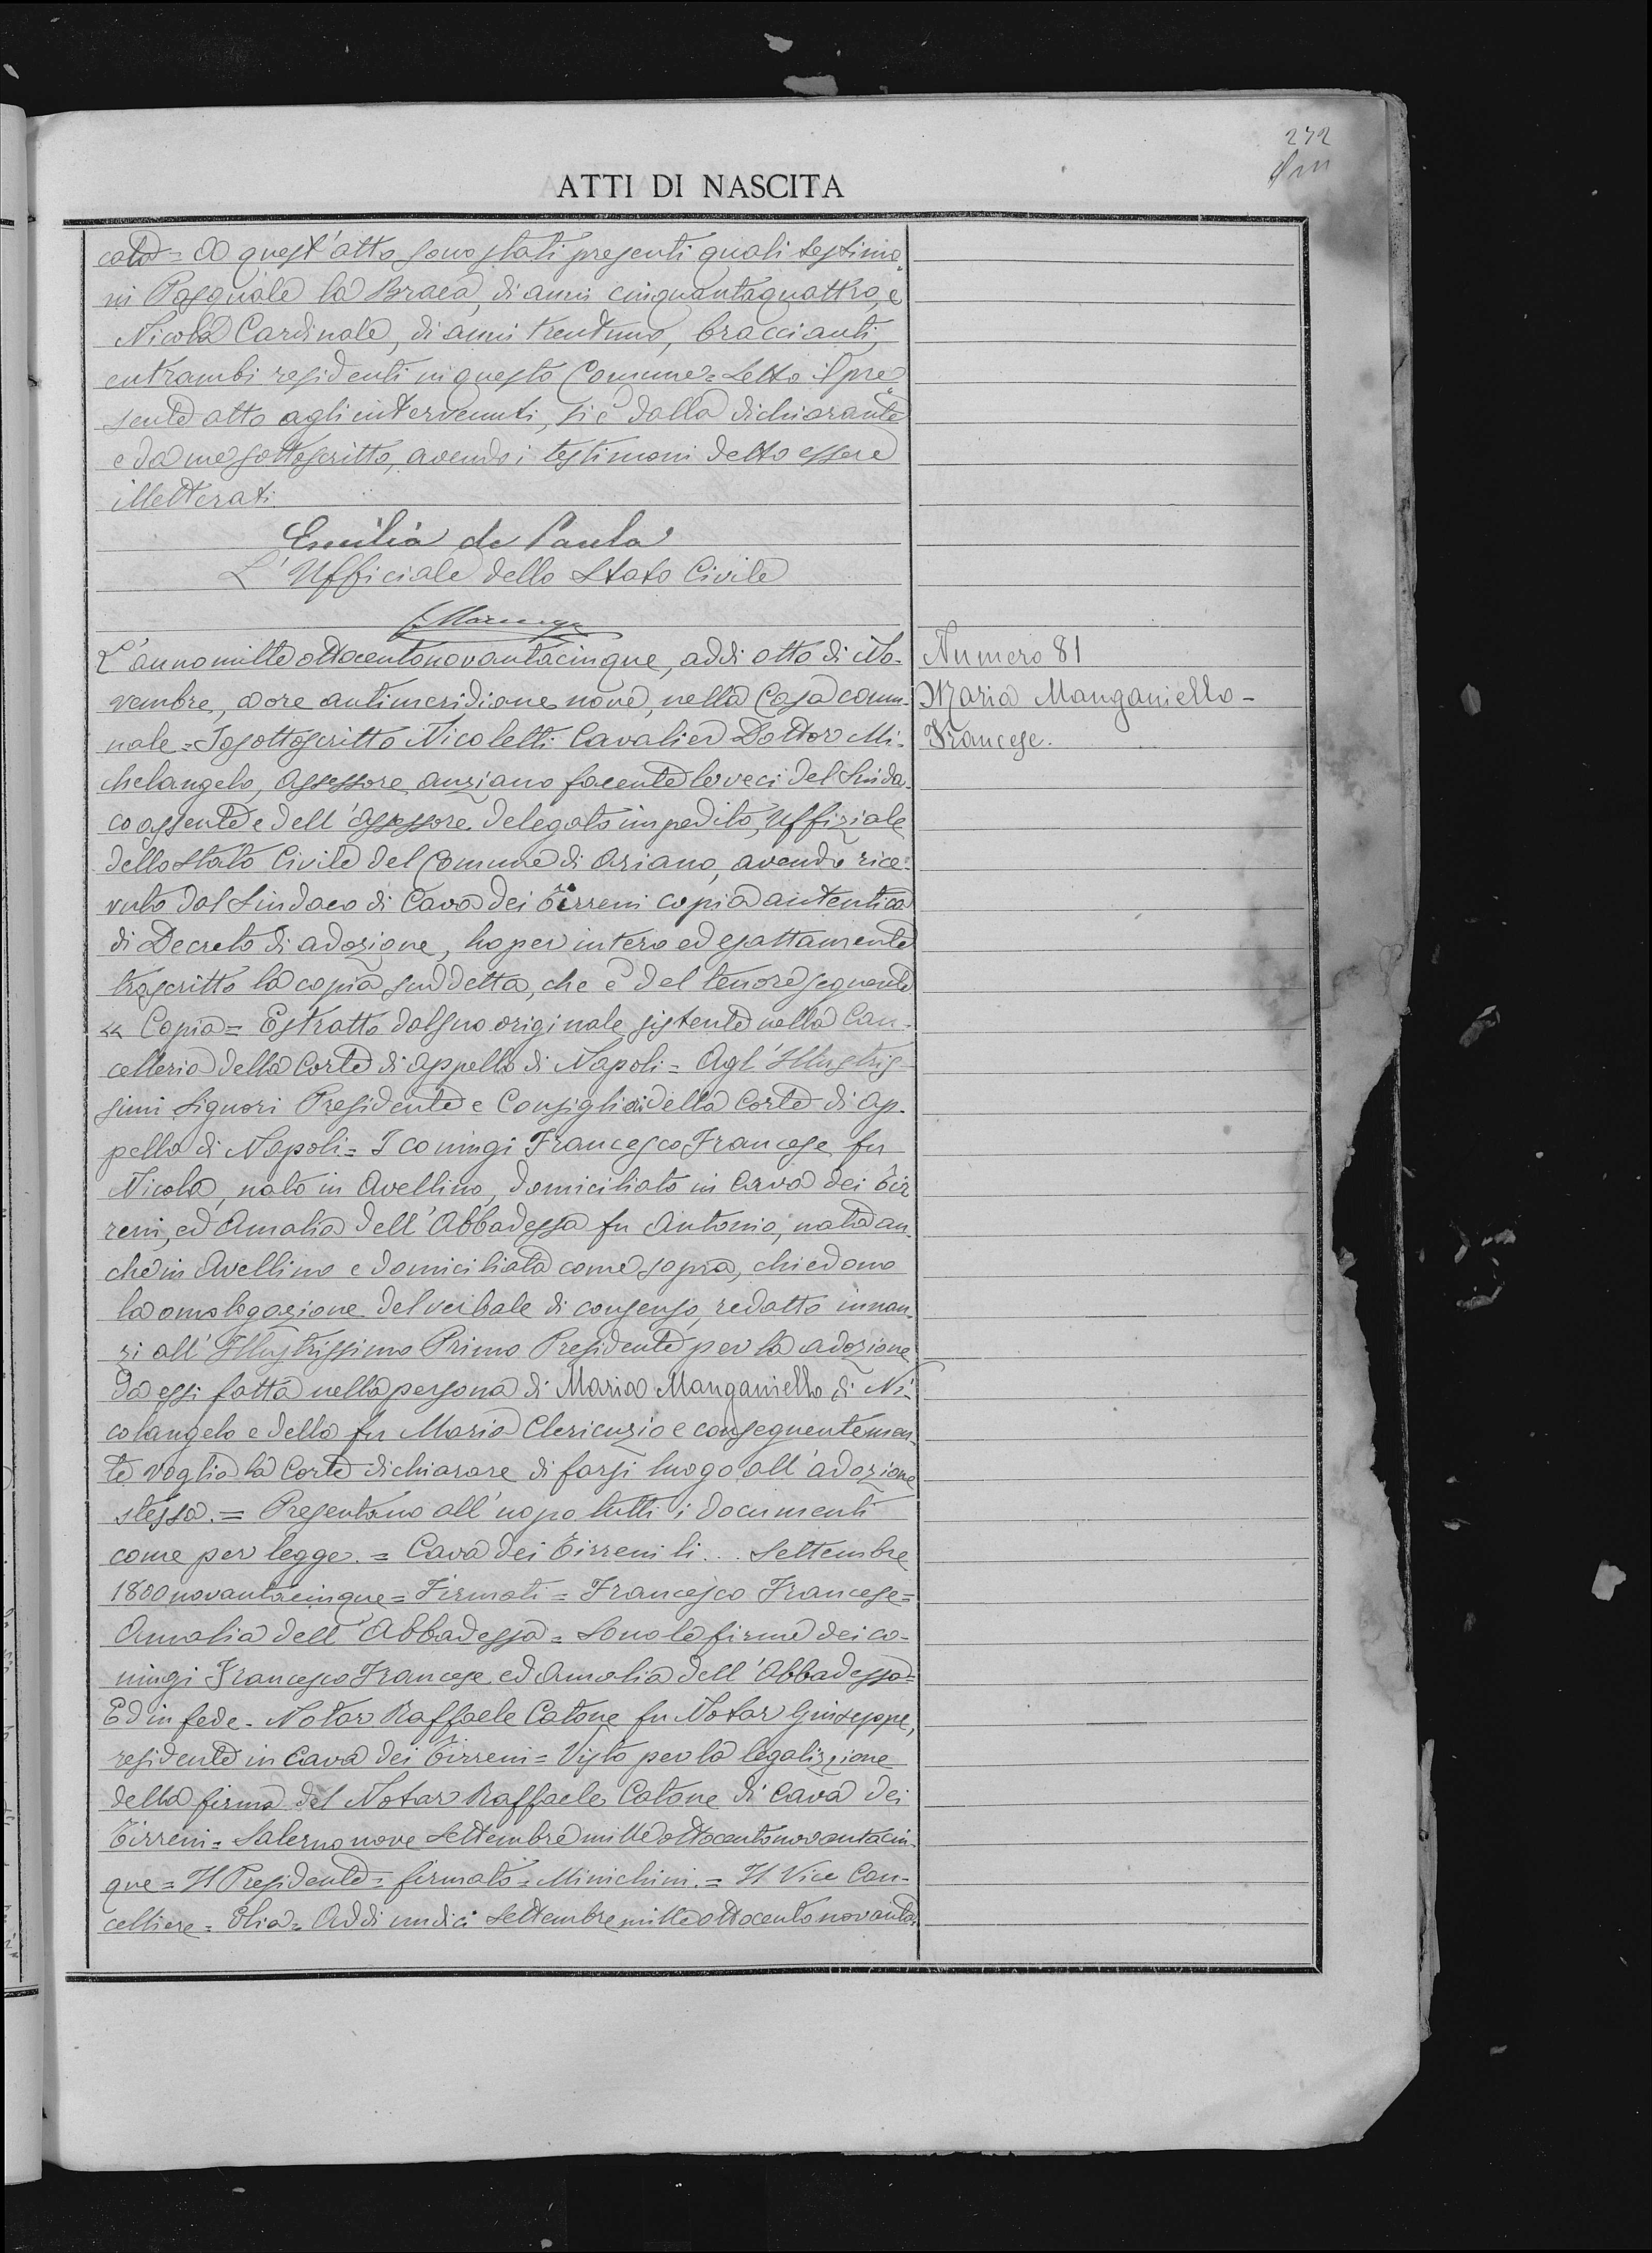 272
ATTI DI NASCITA
cato = A quest'atto sono stati presenti quali testimo„
ni Pasquale la Braca, di anni cinquantaquattro, e
Nicola Cardinale, di anni trentuno, braccianti,
entrambi residenti in questo Comune = Letto il pre„
sente atto agli intervenuti, si è dalla dichiarante
e da me sottoscritto, avendo i testimoni detto essere
illetterati.
Emilia de Paula
L'Uffiziale dello Stato Civile
L'anno mille ottocentonovantacinque, addì otto di No-
vembre, a ore antimeridiane nove, nella Casa comu-
nale = Io sottoscritto Nicoletti Cavalier Dottor Mi-
chelangelo, Assessore anziano facente le veci del Sinda-
co assente e dell'assessore delegato impedito, Uffiziale
dello Stato Civile del Comune di Ariano, avendo rice-
vuto dal Sindaco di Cava dei Tirreni copia autentica
di Decreto di adozione, ho per intero ed esattamente
trascritto la copia suddetta, che è del tenore seguente
« Copia = Estratto dal suo originale sistente nella Can-
celleria della Corte di Appello di Napoli = Agl'Illustris-
simi Signori Presidente e Consiglieri della Corte di Ap-
pello di Napoli = I coniugi Francesco Francese fu
Nicola, nato in Avellino, domiciliato in Cava dei Tir
reni, ed Amalia dell'Abbadessa fu Antonio, nata an-
che in Avellino e domiciliata come sopra, chiedono
la omologazione del verbale di consenso, redatto innan-
zi all'Illustrissimo Primo Presidente per la adozione
da essi fatta nella persona di Maria Manganiello di Ni-
colangelo e della fu Maria Clericuzio e conseguentemen-
te voglia la Corte dichiarare di farsi luogo all'adozione
stessa. = Presentano all'uopo tutti i documenti
come per legge. = Cava dei Tirreni li... Settembre
1800novantacinque = Firmati = Francesco Francese =
Amalia dell'Abbadessa = Sono le firme dei co-
niugi Francesco Francese ed Amalia dell'Abbadessa =
Ed in fede - Notar Raffaele Catone fu Notar Giuseppe,
residente in Cava dei Tirreni = Visto per la legalizzione
della firma del Notar Raffaele Catone di Cava dei
Tirreni = Salerno nove Settembre mille ottocentonovantacin-
que = Il Presidente = firmato = Minichini. = Il Vice Can-
celliere = Elia = Addì undici Settembre mille ottocento novanta-
Numero 81
Maria Manganiello -
Francese.